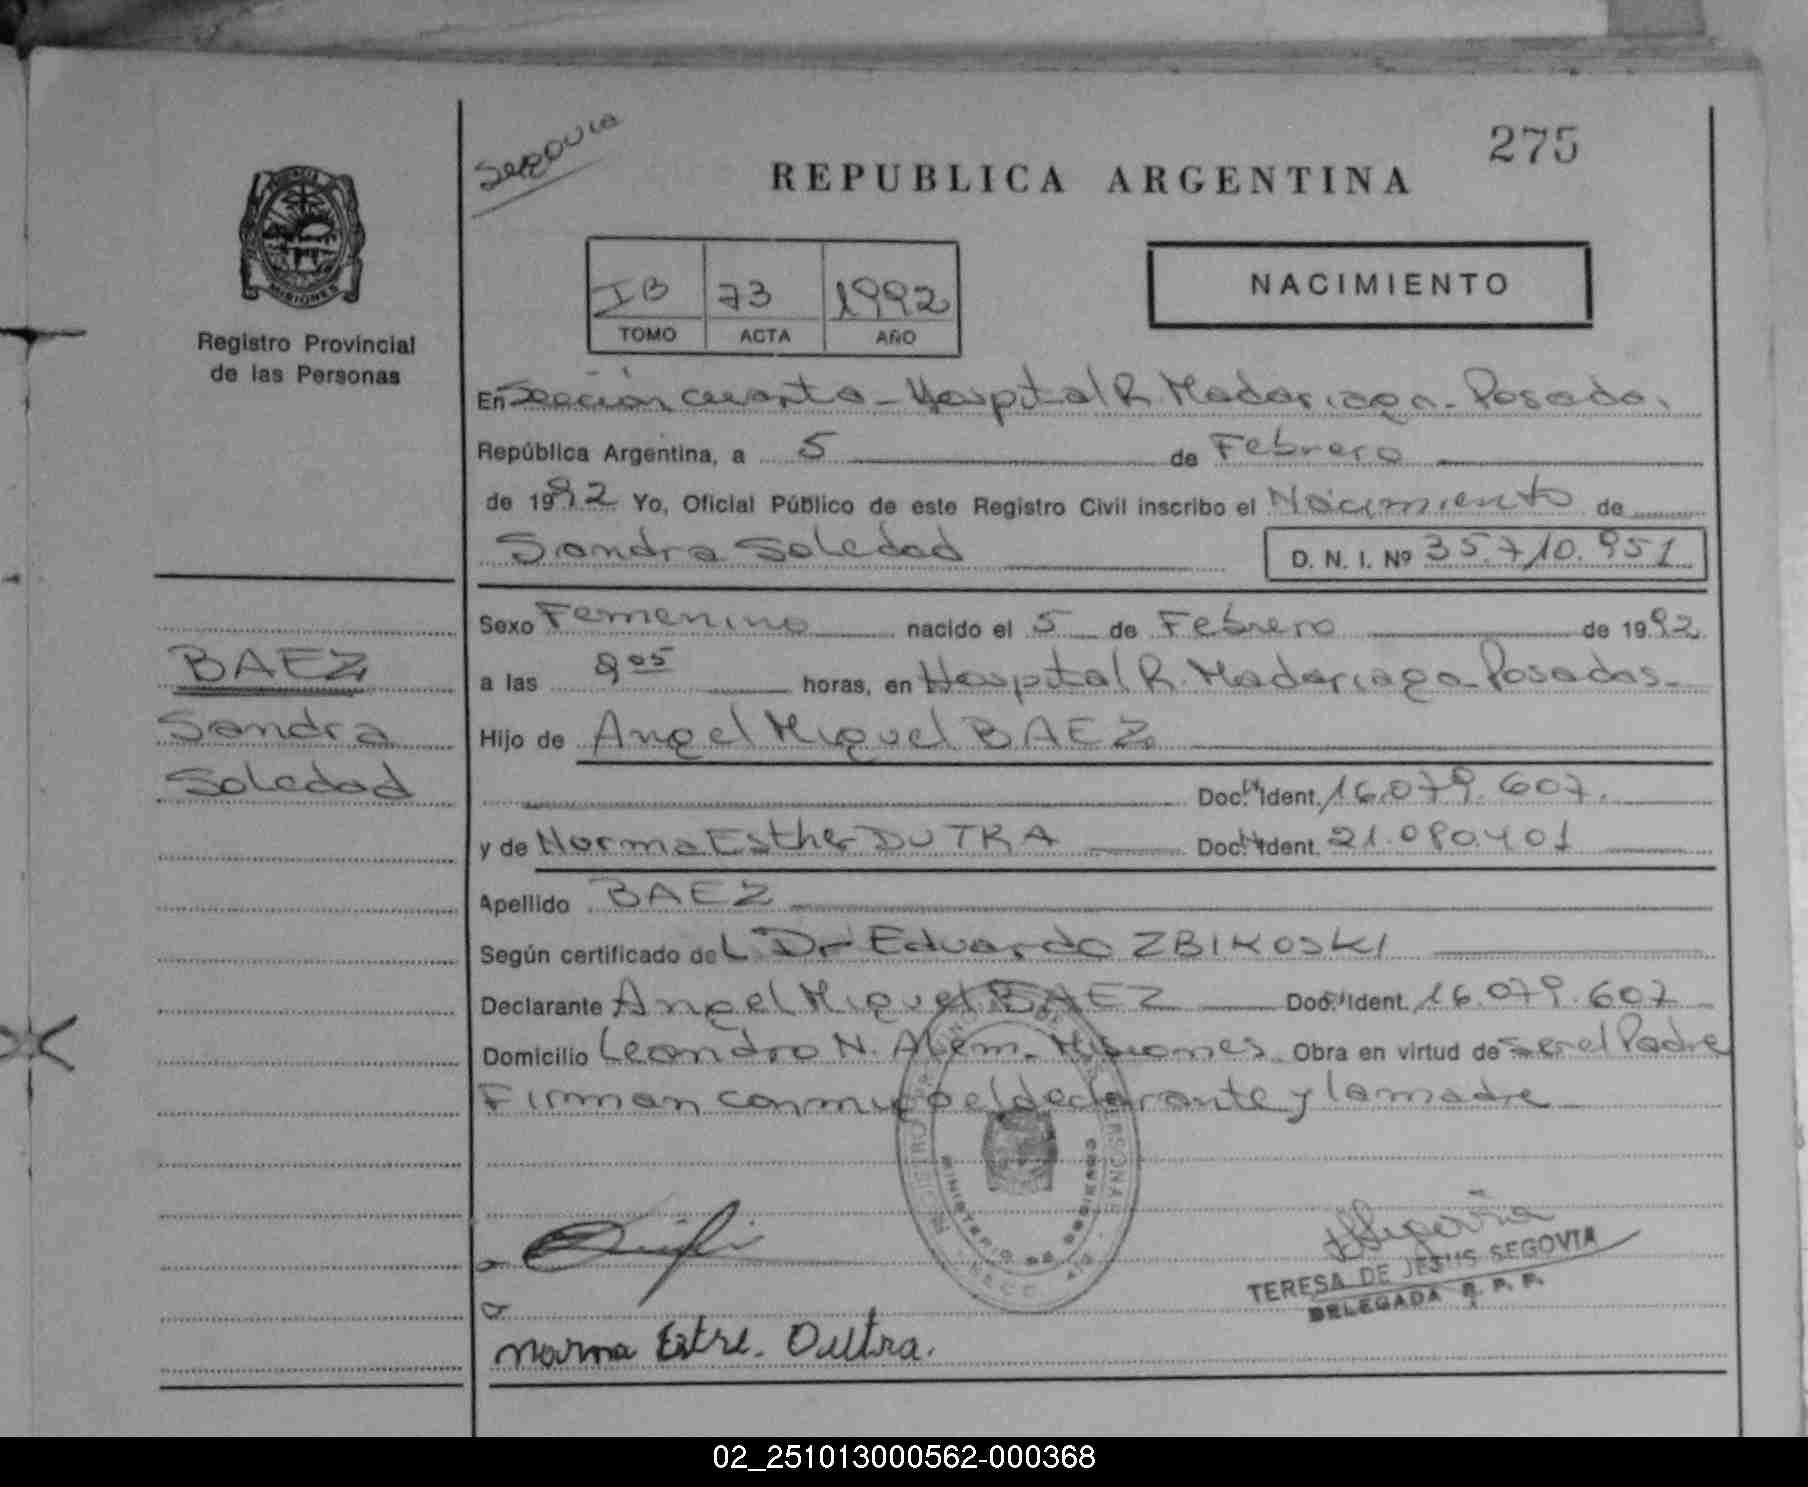 Segovia
275
REPUBLICA ARGENTINA
MISIONES
Registro Provincial
de las Personas
IB 73 1992
TOMO ACTA AÑO
NACIMIENTO
En Sección cuarta - Hospital R. Madariaga - Posadas
República Argentina, a 5 de Febrero
de 1992 Yo, Oficial Público de este Registro Civil inscribo el Nacimiento de
Sandra Soledad D. N. I. Nº 35.710.951
Sexo Femenino nacido el 5 de Febrero de 1992
a las 8 05 horas, en Hospital R. Madariaga - Posadas -
Hijo de Angel Miguel BAEZ
Doc. Ident. 16.079.607.
y de Norma Esther DUTRA Doc. Ident. 21.080.401
Apellido BAEZ
Según certificado del Dr Eduardo ZBIKOSKI
Declarante Angel Miguel BAEZ Doc. Ident. 16.079.607
Domicilio Leandro N. Alem - Misiones Obra en virtud de ser el Padre
Firman conmigo el declarante y la madre
BAEZ
Sandra
Soledad
MINISTERIO DE GOBIERNO
Segovia
TERESA DE JESUS SEGOVIA
DELEGADA R. P. P.
Norma Estre. Dultra.
02_251013000562-000368